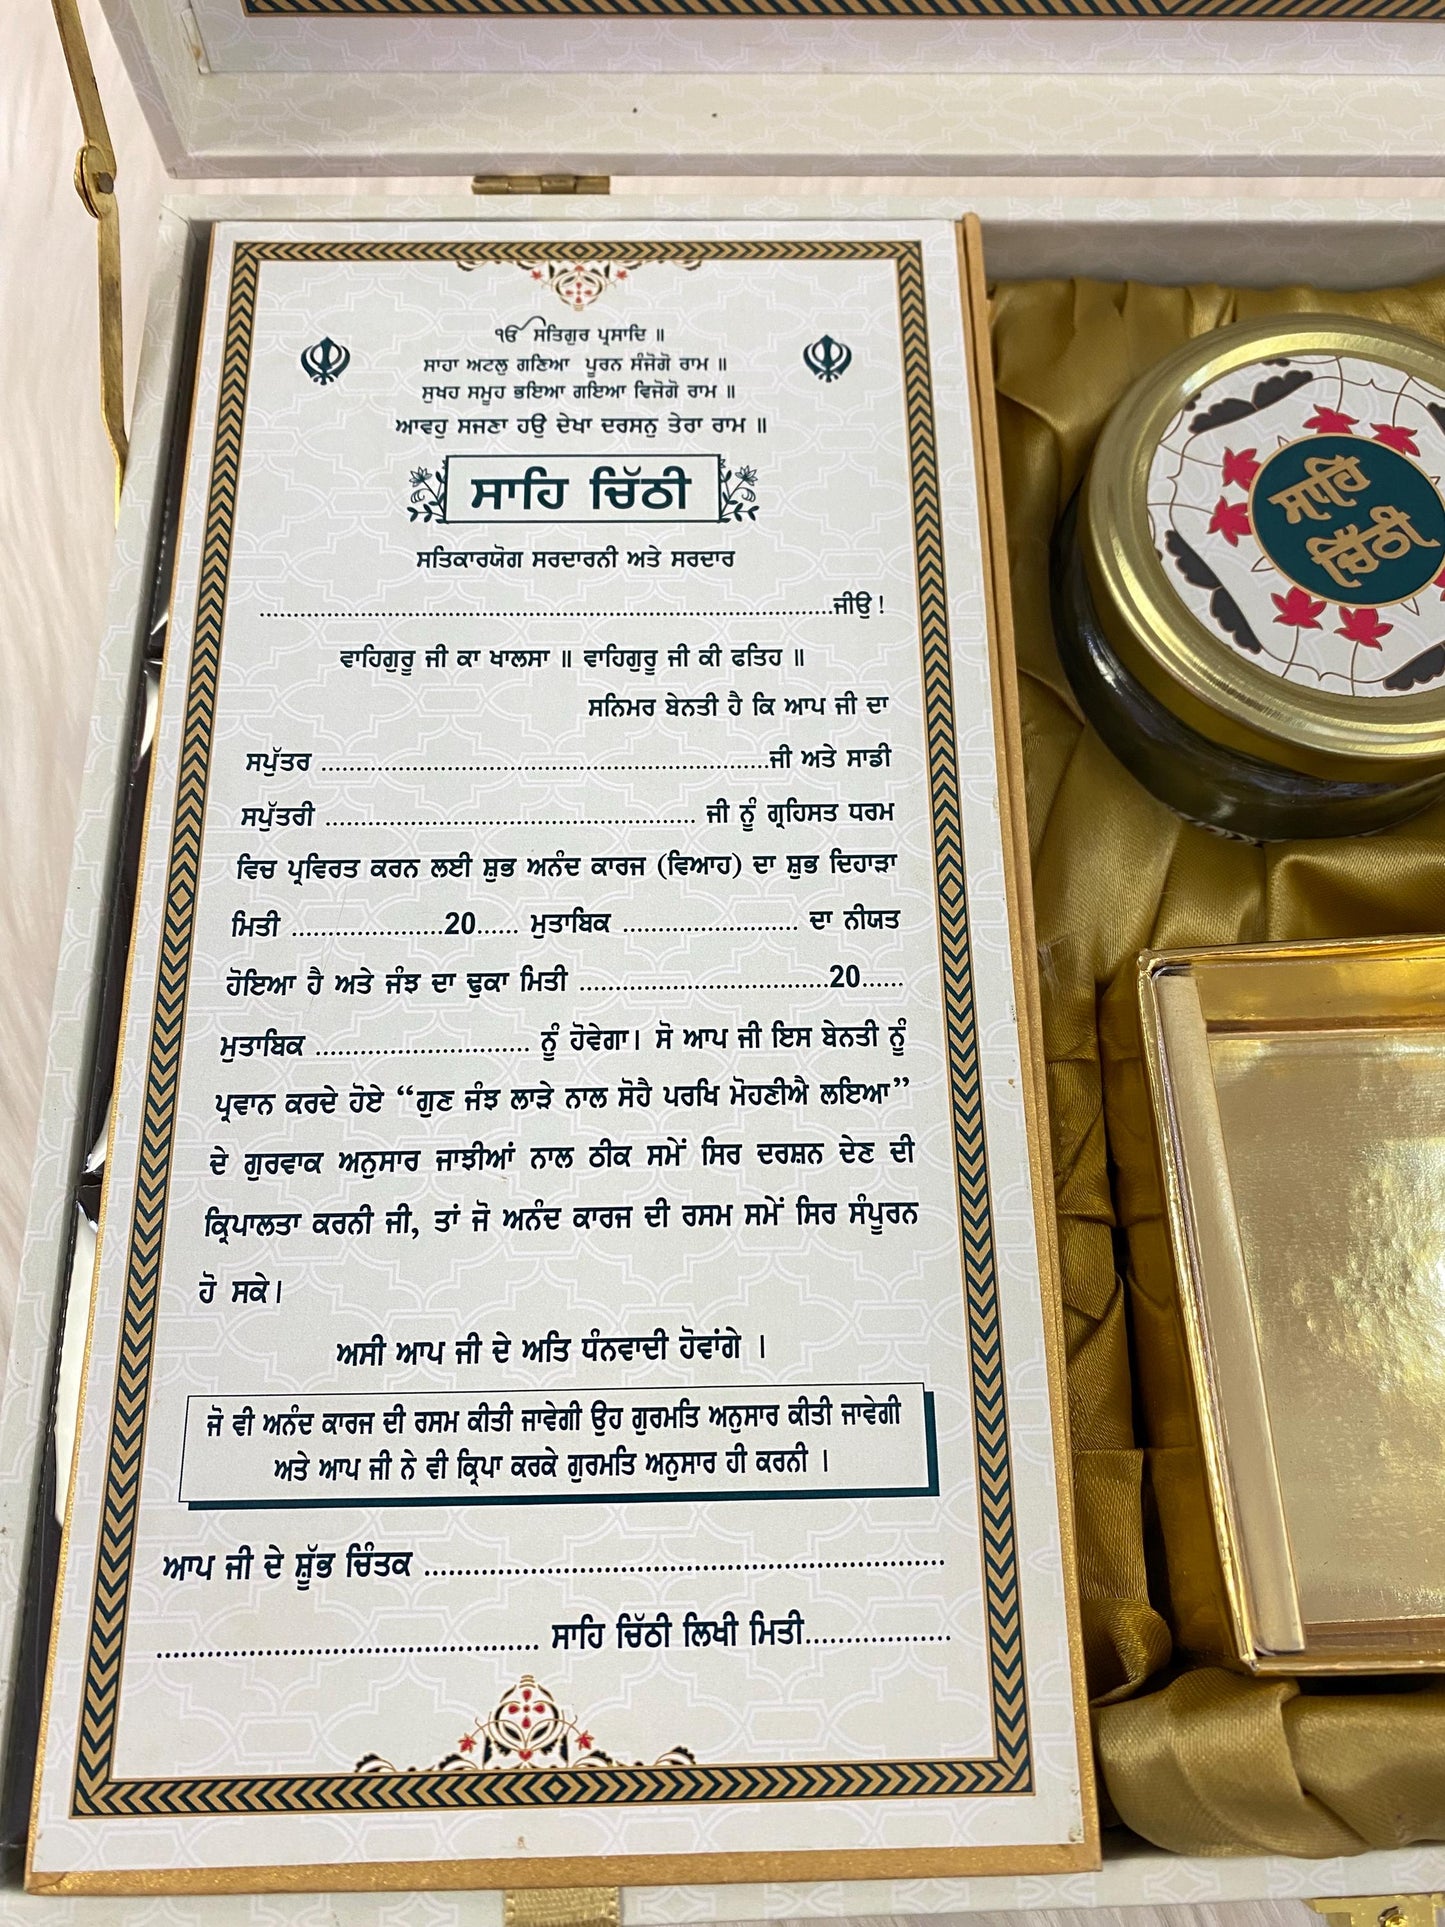 ੴ ਸਤਿਗੁਰ ਪ੍ਰਸਾਦਿ ॥
ਸਾਹਾ ਅਟਲੁ ਗਣਿਆ ਪੂਰਨ ਸੰਜੋਗੋ ਰਾਮ ॥
ਸੁਖਹ ਸਮੂਹ ਭਇਆ ਗਇਆ ਵਿਜੋਗੋ ਰਾਮ ॥
ਆਵਹੁ ਸਜਣਾ ਹਉ ਦੇਖਾ ਦਰਸਨੁ ਤੇਰਾ ਰਾਮ ॥
ਸਾਹਿ ਚਿੱਠੀ
ਸਤਿਕਾਰਯੋਗ ਸਰਦਾਰਨੀ ਅਤੇ ਸਰਦਾਰ
........................................ਜੀਉ !
ਵਾਹਿਗੁਰੂ ਜੀ ਕਾ ਖਾਲਸਾ ॥ ਵਾਹਿਗੁਰੂ ਜੀ ਕੀ ਫਤਿਹ ॥
ਸਨਿਮਰ ਬੇਨਤੀ ਹੈ ਕਿ ਆਪ ਜੀ ਦਾ
ਸਪੁੱਤਰ ........................................ਜੀ ਅਤੇ ਸਾਡੀ
ਸਪੁੱਤਰੀ ........................................ ਜੀ ਨੂੰ ਗ੍ਰਹਿਸਤ ਧਰਮ
ਵਿਚ ਪ੍ਰਵਿਰਤ ਕਰਨ ਲਈ ਸ਼ੁਭ ਅਨੰਦ ਕਾਰਜ (ਵਿਆਹ) ਦਾ ਸ਼ੁਭ ਦਿਹਾੜਾ
ਮਿਤੀ .....................20...... ਮੁਤਾਬਿਕ ......................... ਦਾ ਨੀਯਤ
ਹੋਇਆ ਹੈ ਅਤੇ ਜੰਝ ਦਾ ਢੁਕਾ ਮਿਤੀ ...................................20......
ਮੁਤਾਬਿਕ .............................. ਨੂੰ ਹੋਵੇਗਾ। ਸੋ ਆਪ ਜੀ ਇਸ ਬੇਨਤੀ ਨੂੰ
ਪ੍ਰਵਾਨ ਕਰਦੇ ਹੋਏ “ਗੁਣ ਜੰਝ ਲਾੜੇ ਨਾਲ ਸੋਹੈ ਪਰਖਿ ਮੋਹਣੀਐ ਲਇਆ”
ਦੇ ਗੁਰਵਾਕ ਅਨੁਸਾਰ ਜਾਞੀਆਂ ਨਾਲ ਠੀਕ ਸਮੇਂ ਸਿਰ ਦਰਸ਼ਨ ਦੇਣ ਦੀ
ਕ੍ਰਿਪਾਲਤਾ ਕਰਨੀ ਜੀ, ਤਾਂ ਜੋ ਅਨੰਦ ਕਾਰਜ ਦੀ ਰਸਮ ਸਮੇਂ ਸਿਰ ਸੰਪੂਰਨ
ਹੋ ਸਕੇ।
ਅਸੀ ਆਪ ਜੀ ਦੇ ਅਤਿ ਧੰਨਵਾਦੀ ਹੋਵਾਂਗੇ ।
ਜੋ ਵੀ ਅਨੰਦ ਕਾਰਜ ਦੀ ਰਸਮ ਕੀਤੀ ਜਾਵੇਗੀ ਉਹ ਗੁਰਮਤਿ ਅਨੁਸਾਰ ਕੀਤੀ ਜਾਵੇਗੀ
ਅਤੇ ਆਪ ਜੀ ਨੇ ਵੀ ਕ੍ਰਿਪਾ ਕਰਕੇ ਗੁਰਮਤਿ ਅਨੁਸਾਰ ਹੀ ਕਰਨੀ ।
ਆਪ ਜੀ ਦੇ ਸ਼ੁੱਭ ਚਿੰਤਕ ........................................
........................................ ਸਾਹਿ ਚਿੱਠੀ ਲਿਖੀ ਮਿਤੀ..................
ਸਾਹਿ
ਚਿੱਠੀ